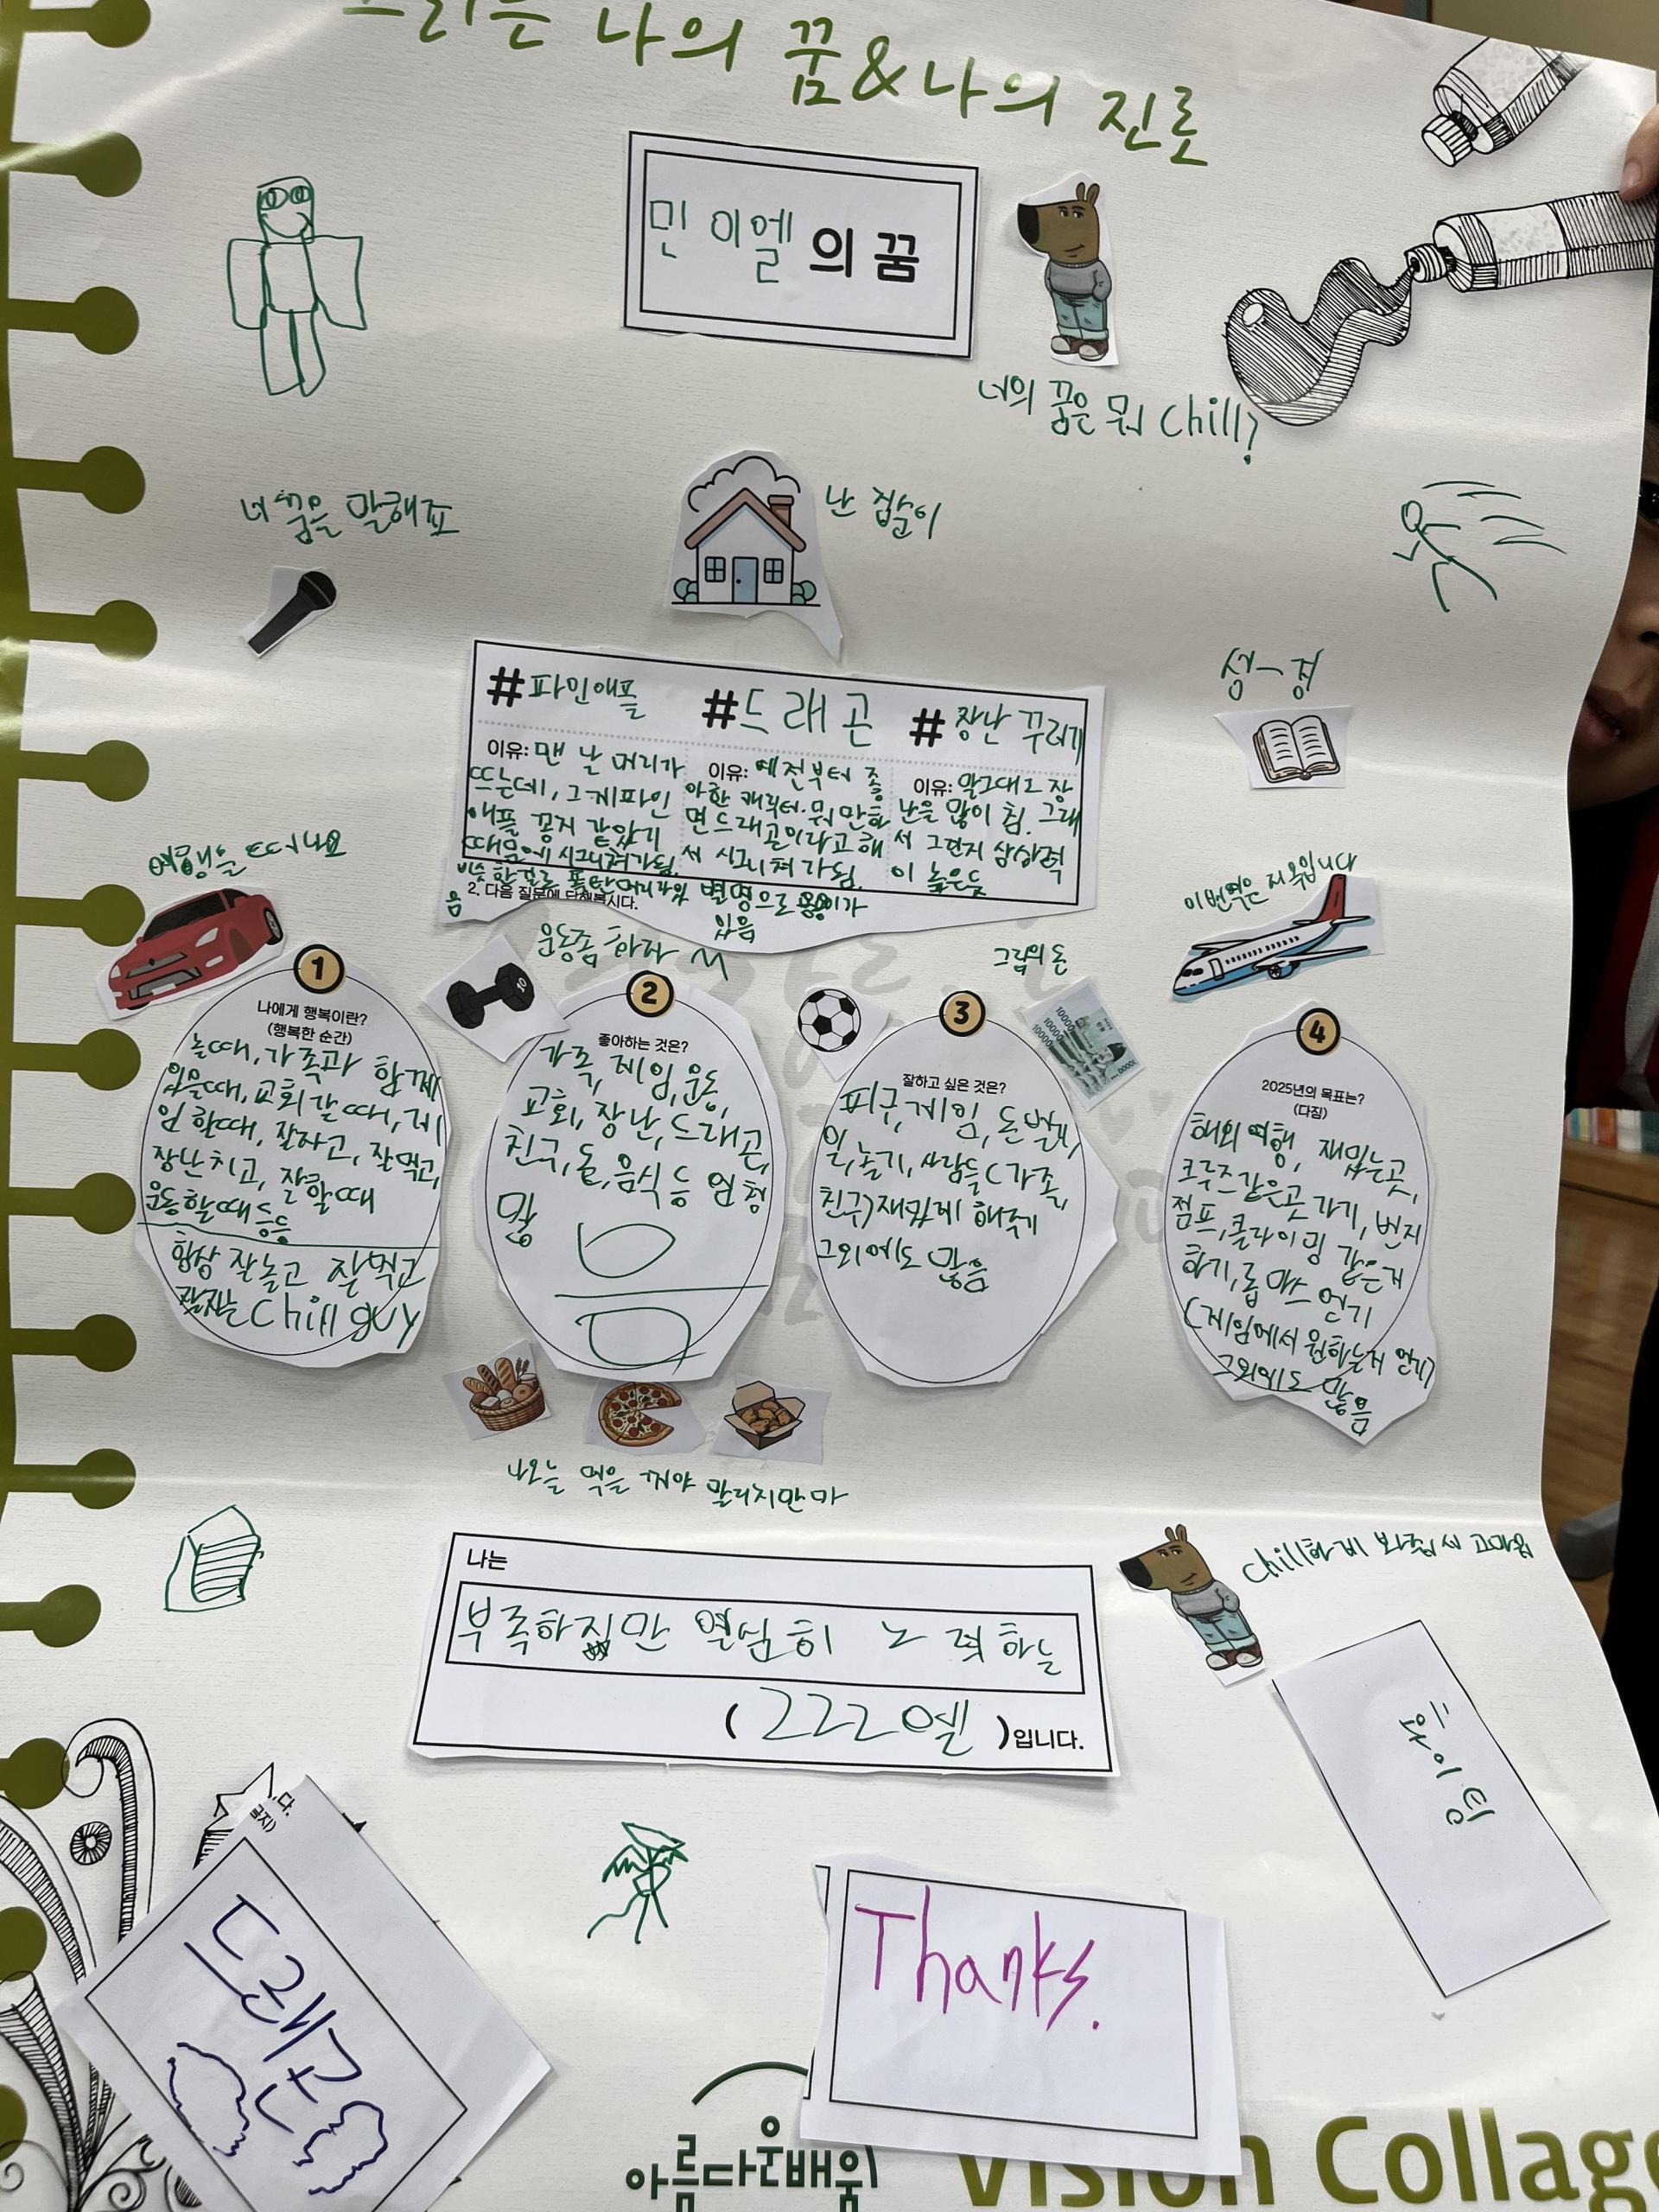 그리는 나의 꿈&나의 진로
민이엘의 꿈
너의 꿈은 뭐 chill?
너 꿈을 말해죠
난 집순이
성-경
#파인애플
이유: 맨날 머리가
뜨는데, 그게파인
애플 꽁지 같았기
때문에 시그니쳐가됨.
비슷한걸로 폭탄머리가있
음
#드래곤
이유: 예전부터 좋
아한 캐릭터. 뭐만하
면드래곤이라고 해
서 시그니쳐가됨.
별명으로 용용이가
있음
#장난 꾸러기
이유: 말그대로 장
난을 많이 침. 그래
서 그런지 상상력
이 높은듯
2. 다음 질문에 답해봅시다.
여행을 떠나요
운동좀 하자
그림의 돈
이번역은 지옥입니다
1
나에게 행복이란?
(행복한 순간)
놀때, 가족과 함께
있을때, 교회갈 때, 게
임 할때, 잘자고, 잘먹고,
장난치고, 잘할때
운동할때 등등
항상 잘놀고 잘먹고
잘자는 Chill guy
2
좋아하는 것은?
가족, 게임, 운동,
교회, 장난, 드래곤,
친구, 돌, 음식 등 엄청
많음
3
잘하고 싶은 것은?
피구, 게임, 돈벌기,
일, 놀기, 사람들(가족,
친구)재밌게 해주기
그외에도 많음
10000
10000
10000
10
4
2025년의 목표는?
(다짐)
해외여행, 재밌는곳,
크루즈같은곳 가기, 번지
점프, 클라이밍 같은거
하기, 롭 얻기
(게임에서 원하는거 얻기)
그외에도 많음
나오늘 먹을 거야 말리지만 마
나는
부족하지만 열심히 노력하는
(222엘)입니다.
chill하게 봐줘서 고마워
화이팅
다.
금지)
드래곤
Thanks.
아름다운배움
Vision Collag